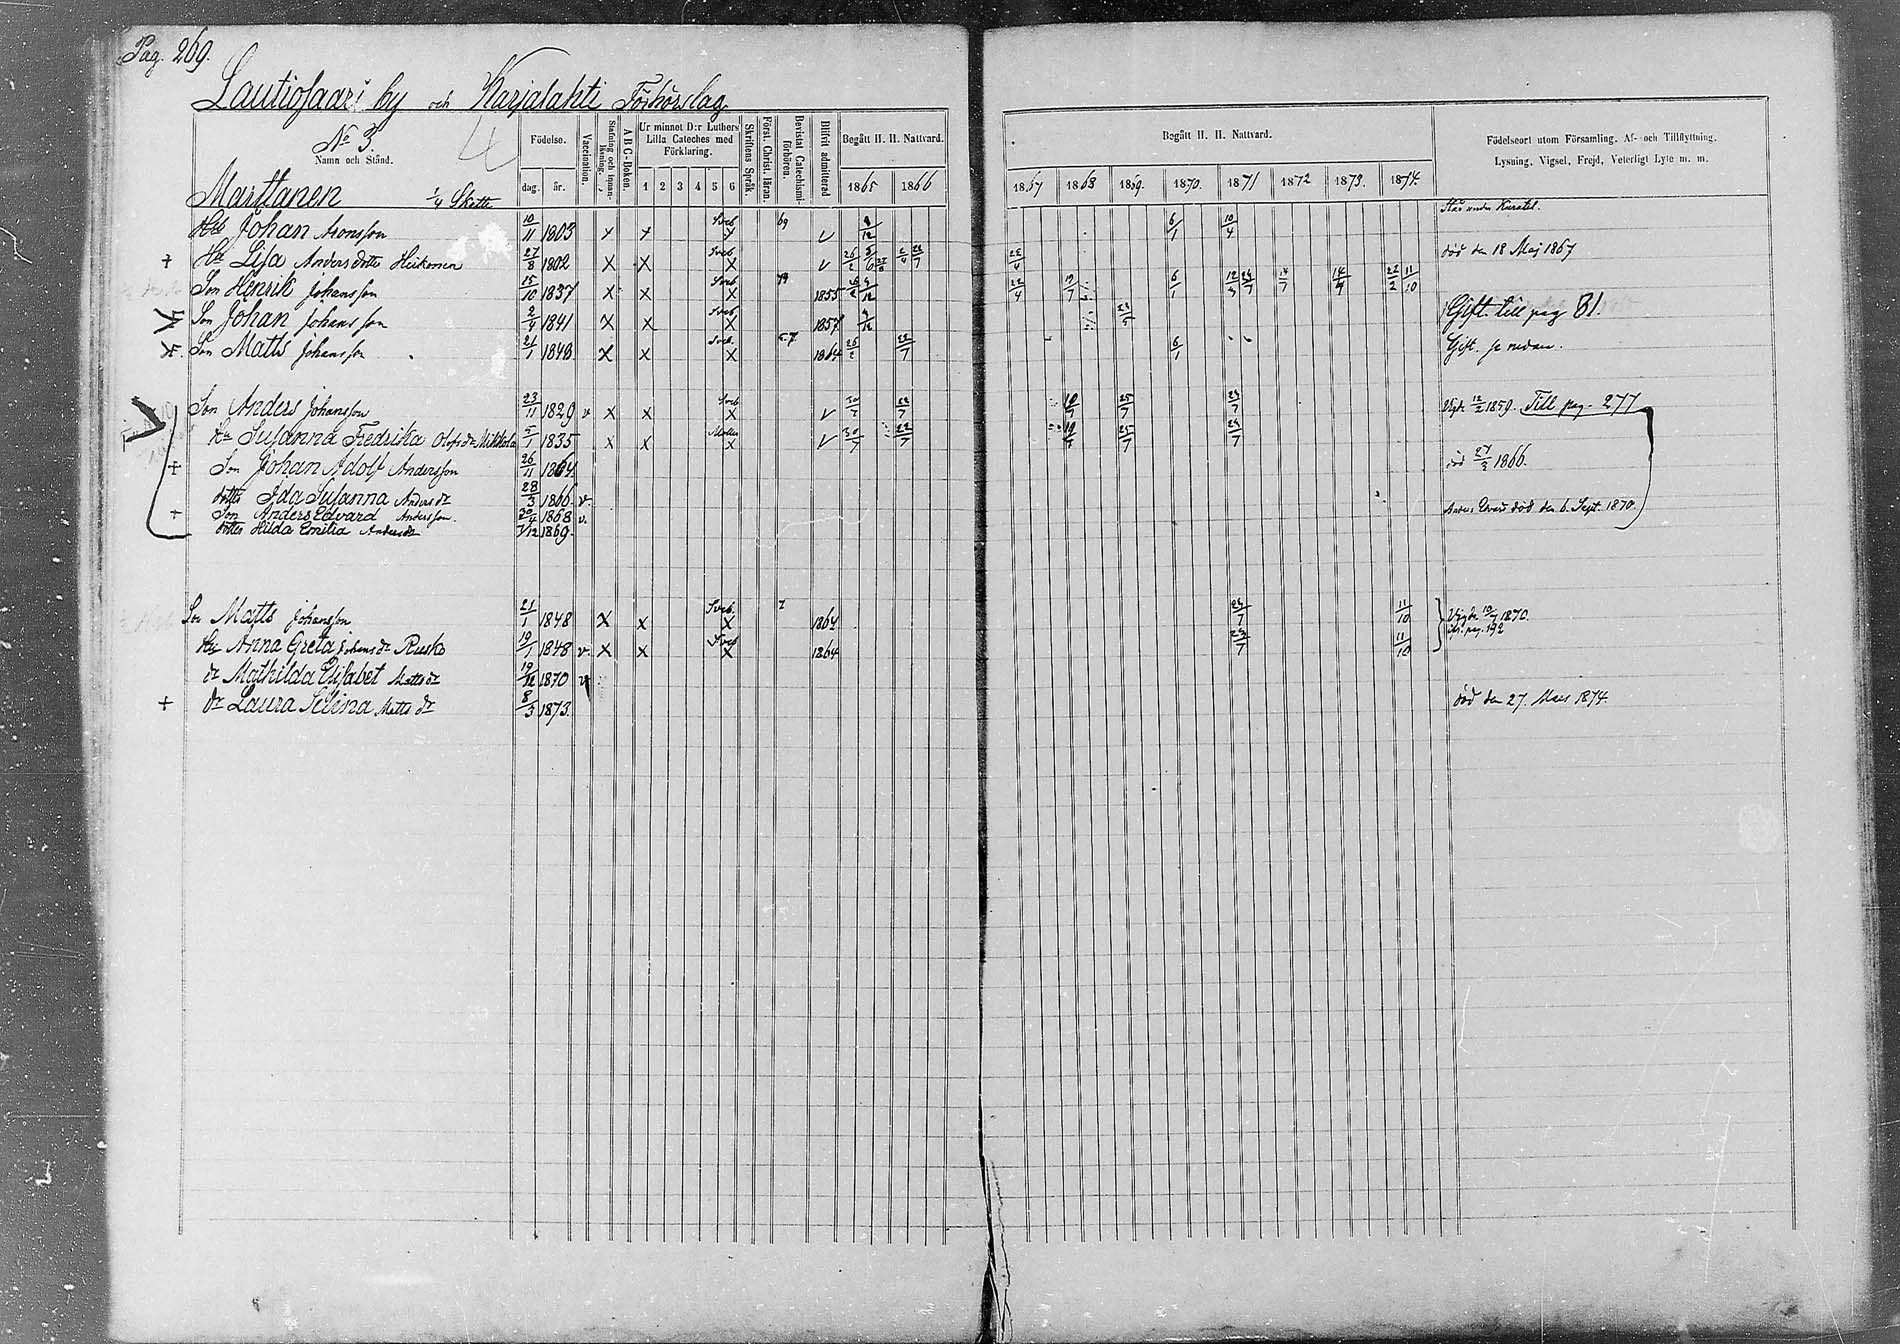 Pag. 269.
Lautiosaari by och Karjalahti Förhörslag
No 3.
Namn och Stånd.
Födelse.
dag. år.
Vaccination.
Stafning och innan-läsning.
A B C-Boken.
Ur minnet D:r Luthers Lilla Cateches med Förklaring.
1 2 3 4 5 6
Skriftens Språk.
Först. Christ. läran.
Bevistat Catechismi-förhören.
Blifvit admitterad
Begått H. H. Nattvard.
1865 1866
Begått H. H. Nattvard.
1867 1868 1869. 1870. 1871 1872 1873. 1874.
Födelseort utom Församling, Af- och Tillflyttning,
Lysning, Vigsel, Frejd, Veterligt Lyte m. m.
Marttanen 1/4 Skatt
Johan Aronsson 10/11 1803 x x Sveb x 69 v 9/12 6/1 10/4 Står under Kuratel.
+ Hu Lisa Andersdotter Heikonen 27/8 1802 x x Sveb x v 22/4 död den 18 Maj 1867
Son Henrik Johansson 15/10 1837 x x Sveb x 1855 22/4 6/1 14/7 22/2 11/10
Son Johan Johansson 2/4 1841 x x Sveb x 1857 9/12 Gift. till pag 81.
Son Matts Johansson 21/1 1848 x x Sveb. x 1864 22/7 6/1 Gift. se nedan.
Son Anders Johansson 23/11 1829 v x x Sveb x v 30/7 22/7 19/7 25/7 23/7 Vigde 12/2 1859. Till pag. 277
Hu Susanna Fredrika Olofs dr Mikkola 5/1 1835 x x x v 30/7 22/7 19/7 25/7 23/7
+ Son Johan Adolf Andersson 26/11 1864. död 27/3 1866.
dotter Ida Susanna Anders dr 28/3 1866. v.
+ Son Anders Edvard Andersson. 1868 v. Anders Edvard död den 6. Sept. 1870
dotter Hilda Emilia Anders dr 7/12 1869.
Son Matts Johansson 21/1 1848 x x Sveb. x 1864 23/7 11/10 Vigde 10/7 1870.
pag. 192
Hu Anna Greta Johans dr Rusko 19/1 1848 v. x x Sveb x 1864 23/7 11/10
dr Mathilda Elisabet Matts dr 19/12 1870 v
+ dr Laura Selina Matts dr 8/3 1873. död den 27. Mars 1874.